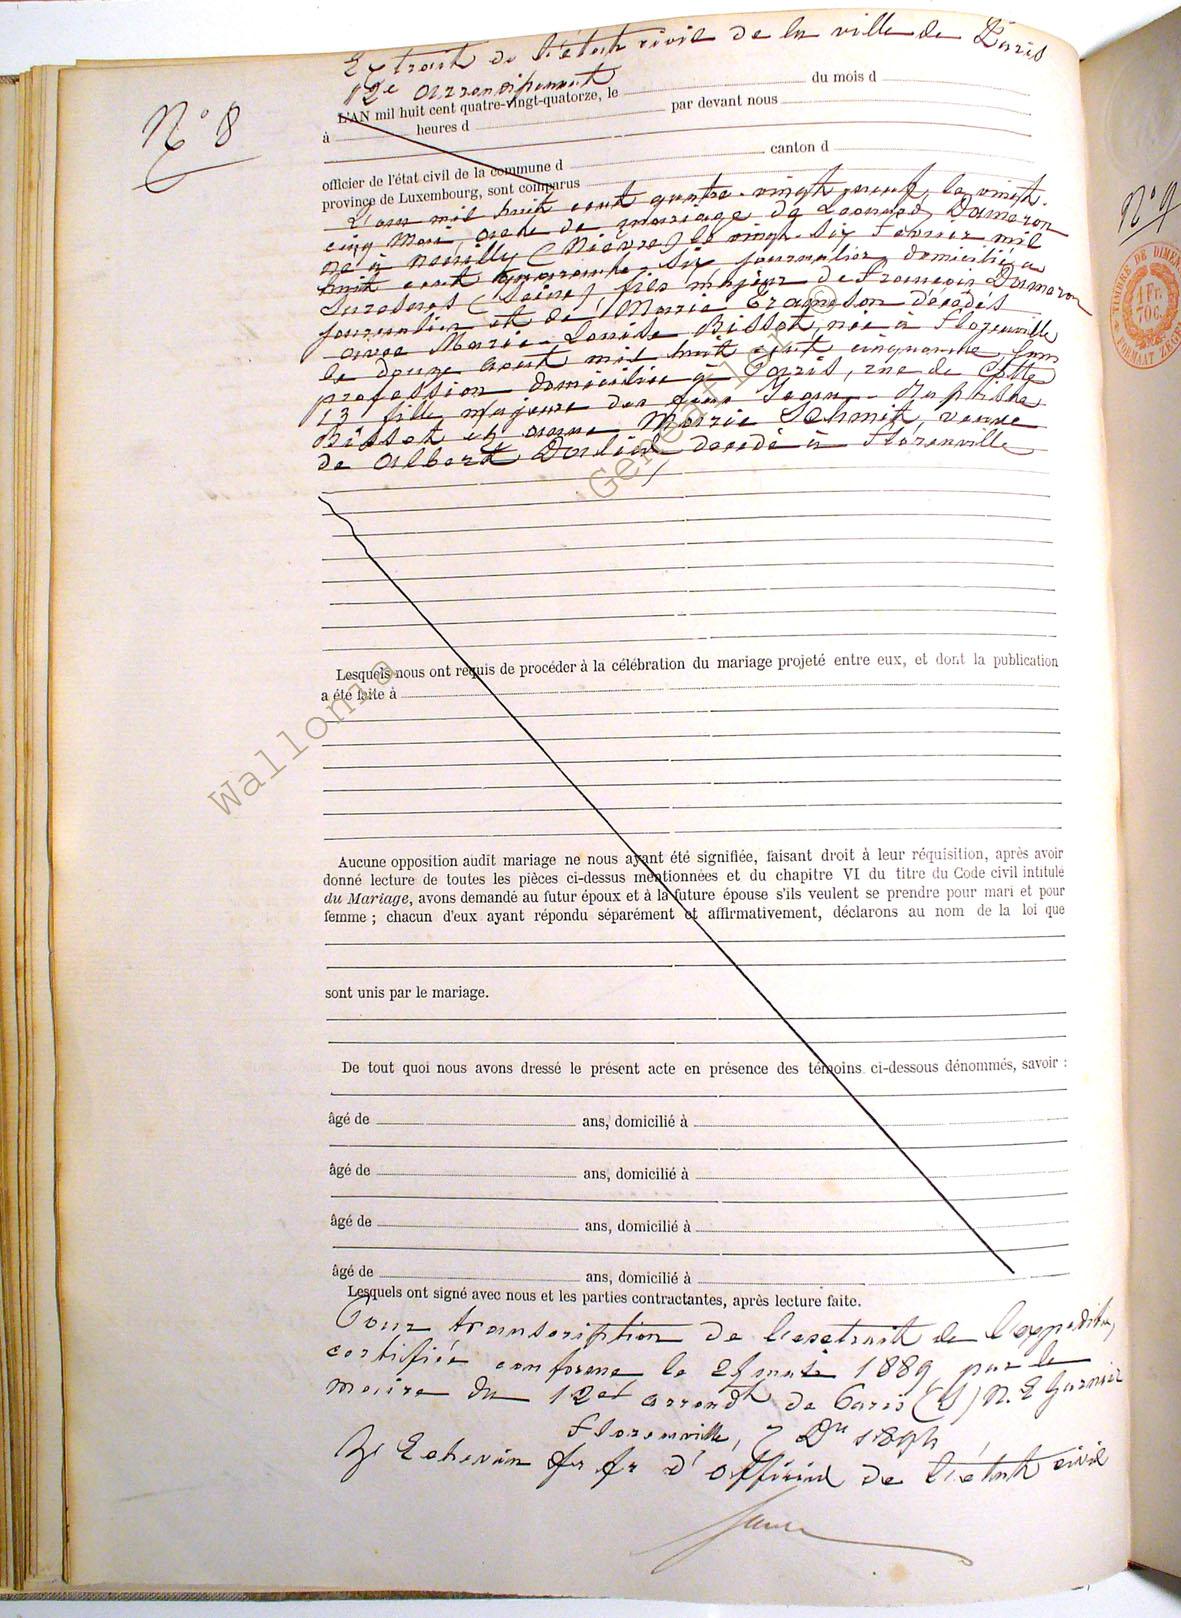 Extrait de l'état civil de la ville de Paris
12e arrondissement
N° 8
L'AN mil huit cent quatre-vingt-quatorze, le du mois d
à heures d par devant nous
officier de l'état civil de la commune d canton d
province de Luxembourg, sont comparus
L'an mil huit cent quatre-vingt neuf, le vingt-
cinq Mai, acte de mariage de Leonard Dameron
né à Neuilly (Nièvre) le vingt-six Février mil
huit cent quarante-six journalier domicilié à
Suresnes (Seine), fils majeur de François Dameron
journalier et de Marie décédés
avec Marie-Louise Bissot, née à Florenville
le douze août mil huit cent cinquante, sans
profession domiciliée à Paris, rue de Cotte
13 fille majeure des feus Jean-Baptiste
Bissot et Anne Marie Schmit, veuve
de Albert décédé à Florenville
Lesquels nous ont requis de procéder à la célébration du mariage projeté entre eux, et dont la publication
a été faite à
Aucune opposition audit mariage ne nous ayant été signifiée, faisant droit à leur réquisition, après avoir
donné lecture de toutes les pièces ci-dessus mentionnées et du chapitre VI du titre du Code civil intitulé
du Mariage, avons demandé au futur époux et à la future épouse s'ils veulent se prendre pour mari et pour
femme ; chacun d'eux ayant répondu séparément et affirmativement, déclarons au nom de la loi que
sont unis par le mariage.
De tout quoi nous avons dressé le présent acte en présence des témoins ci-dessous dénommés, savoir :
âgé de ans, domicilié à
âgé de ans, domicilié à
âgé de ans, domicilié à
âgé de ans, domicilié à
Lesquels ont signé avec nous et les parties contractantes, après lecture faite.
Pour transcription de l'extrait de l'expédition
certifiée conforme le mai 1889 par le
maire du 12e arrondt de Paris (S) N. E Garnier
Florenville, 7 1894
L'Echevin ff d'officier de l'état civil
N° 9
TIMBRE DE DIMEN
1 Fr.
70c.
FORMAAT ZEGEL
Wallonia
Geneafler ©